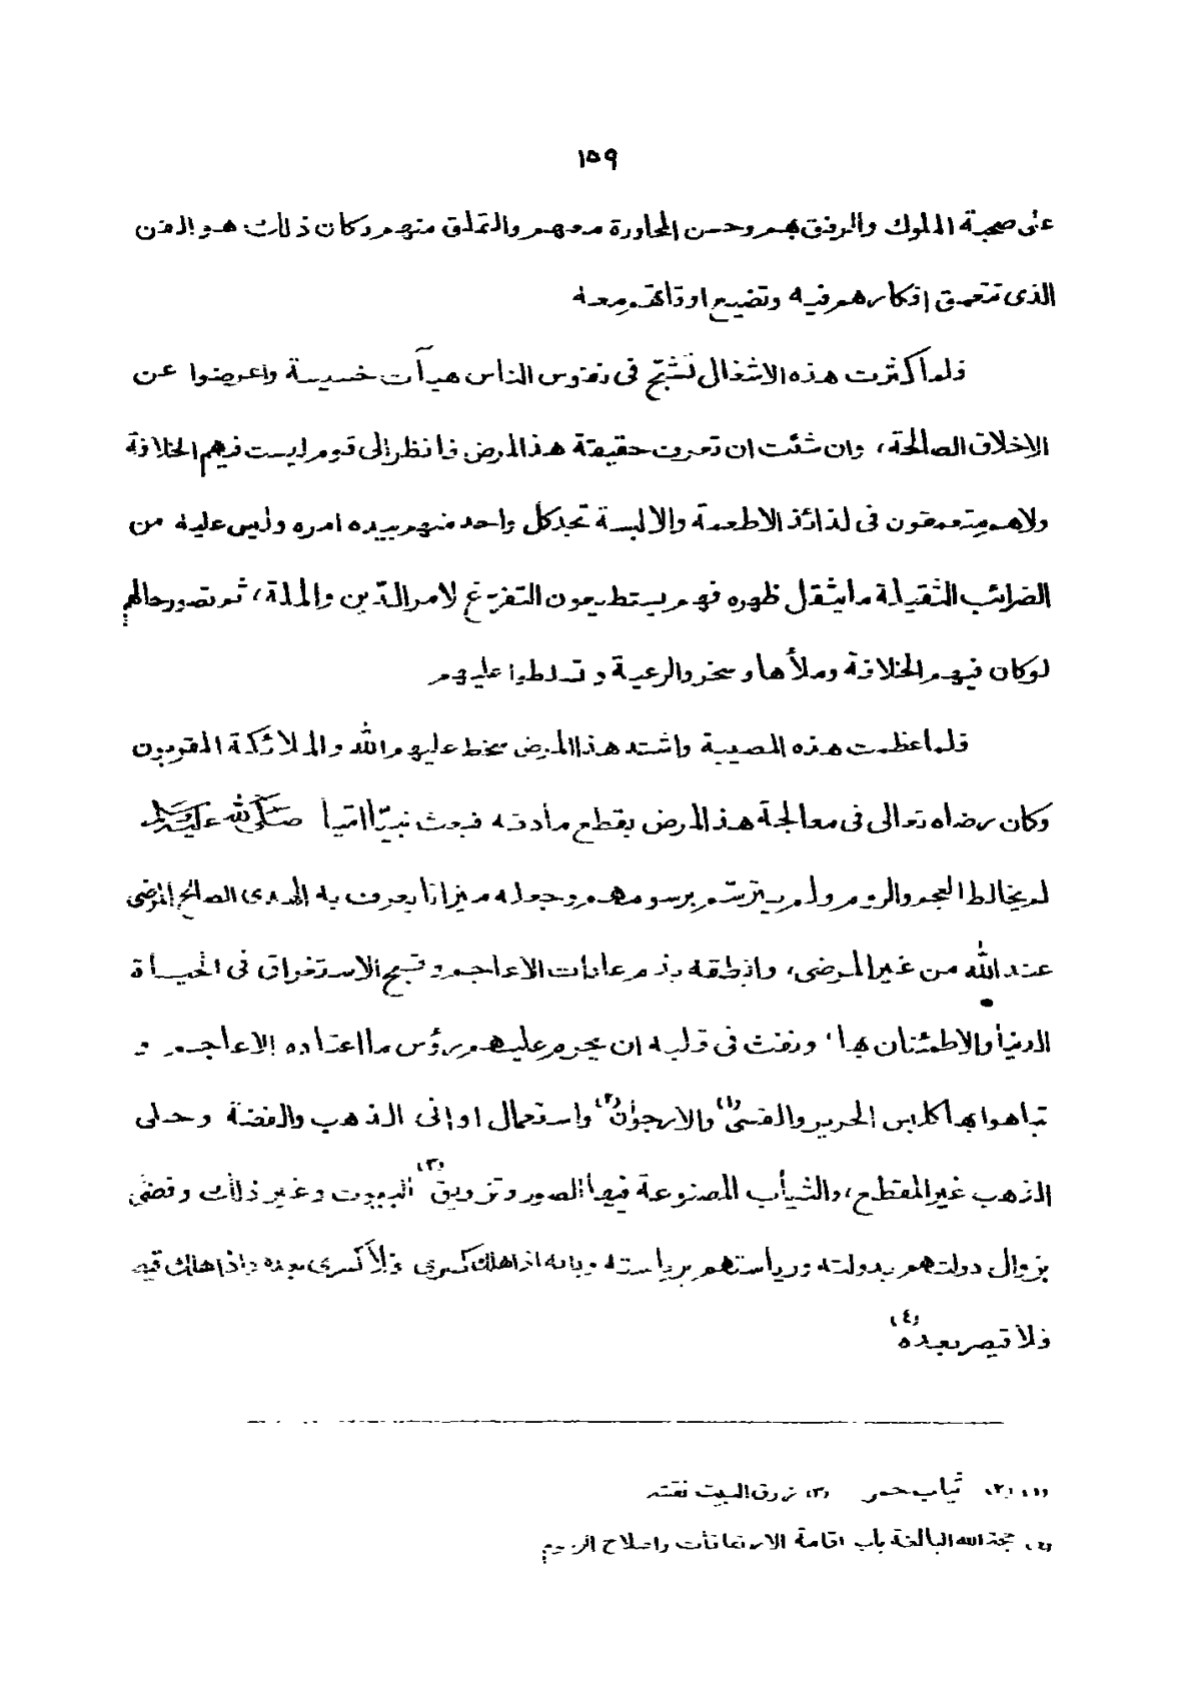 ١٥٩
على صحبة الملوك والرفق بهم وحسن المحاورة معهم والتملق منهم وكان ذلك هو الفن
الذى تتعمق افكارهم فيه وتضيع اوقاتهم معه
فلما كثرت هذه الاشغال تشبّح فى نفوس الناس هيآت خسيسة واعرضوا عن
الاخلاق الصالحة، وان شئت ان تعرف حقيقة هذا المرض فانظر الى قوم ليست فيهم الخلافة
ولاهم متعمقون فى لذائذ الاطعمة والالبسة تجد كل واحد منهم بيده امره وليس عليه من
الضرائب الثقيلة ما يثقل ظهره فهم يستطيعون التفرّغ لامر الدّين والملة، ثم تصور حالهم
لوكان فيهم الخلافة وملأها وسخر والرعية وتسلطوا عليهم
فلما عظمت هذه المصيبة واشتد هذا المرض سخط عليهم الله والملائكة المقربون
وكان رضاه تعالى فى معالجة هذا المرض بقطع مادته فبعث نبيّا امّيا صلى الله عليه وسلم
لم يخالط العجم والروم ولم يترسّم برسومهم وجعله ميزانا يعرف به الهدى الصالح المرضى
عند الله من غير المرضى، وانطقه بذم عادات الاعاجم وقبح الاستغراق فى الحياة
الدنيا والاطمئنان بها، ونفث فى قلبه ان يحرم عليهم رؤس ما اعتاده الاعاجم و
تباهوا بها كلبس الحرير والقسى(١) والارجوان(٢) واستعمال اوانى الذهب والفضة وحلى
الذهب غير المقطع، والثياب المصنوعة فيها الصور وتزويق(٣) البيوت وغير ذلك وقضى
بزوال دولتهم بدولته ورياستهم برياسته وبانه اذا هلك كسرى فلا كسرى بعده واذا هلك قيصر
فلا قيصر بعده(٤)
(١)، (٢)، ثياب حمر (٣)، زوق البيت نقشه
(٤)، حجة الله البالغة باب اقامة الارتفاقات واصلاح الرسوم